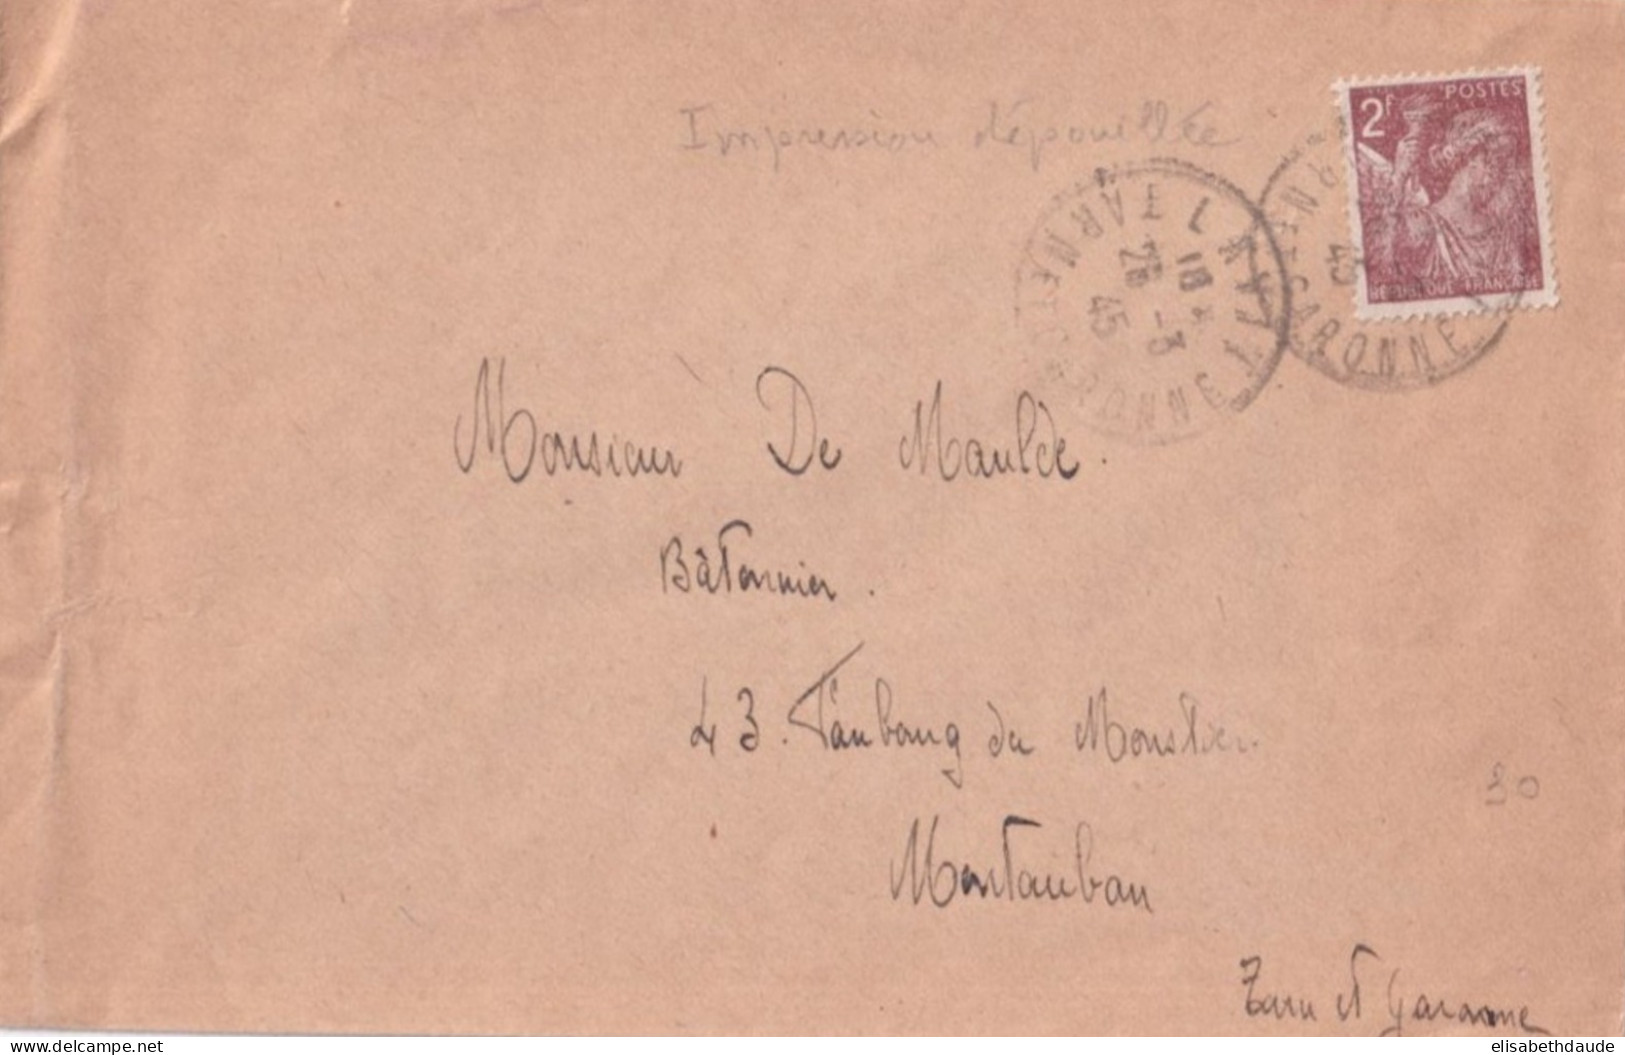 Impression dépouillée
2F POSTES
RÉPUBLIQUE FRANÇAISE
TARN ET GARONNE
18 H
26 -3
45
GARONNE
45
Monsieur De Maulde.
Bâtonnier.
43. Faubourg du Moustier.
30
Montauban
Tarn et Garonne
www.delcampe.net
elisabethdaude